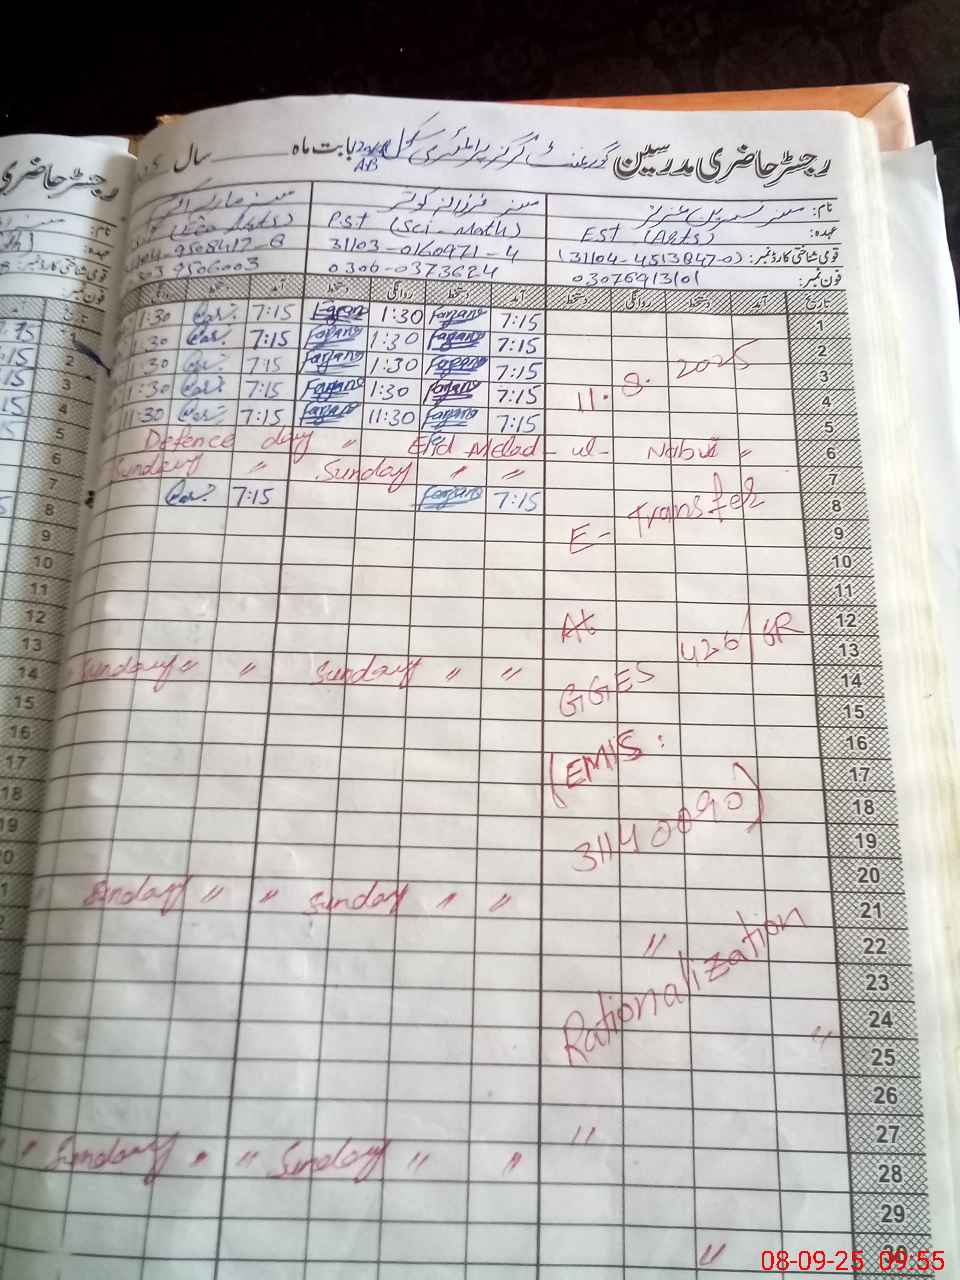 رجسٹر حاضری مدرسین گورنمنٹ گرلز پرائمری سکول بابت ماہ سال
نام: مسز فرزانہ کوثر
عہدہ: EST (Arts) PST (Sci-Math)
قومی شناختی کارڈ نمبر: (31104-4513847-0) 31103-0160971-4
فون نمبر: 03076913101 0300-0373624 9506003
تاریخ آمد دستخط روانگی دستخط آمد دستخط روانگی دستخط آمد دستخط روانگی
1 7:15 Farzana 1:30 Farzana 7:15 1:30
2 7:15 Farzana 1:30 Farzana 7:15 1:30
3 7:15 Farzana 1:30 Farzana 7:15 1:30
4 7:15 Farzana 1:30 Farzana 7:15 1:30
5 7:15 Farzana 11:30 Farzana 7:15 11:30
11.8.2025
6 Defence day " Eid Melad-ul-Nabvi "
7 Sunday " Sunday " "
8 7:15 Farzana 7:15
E-Transfer
9
10
11
12
At
13
426/GR
14 Sunday " " Sunday " "
GGES
15
16
(EMIS:
17
18
31140090)
19
20
21 Sunday " " Sunday " "
22 "
23
Rationalization
24
25 "
26
27 "
28 Sunday " " Sunday " "
29
30 "
08-09-25 09:55